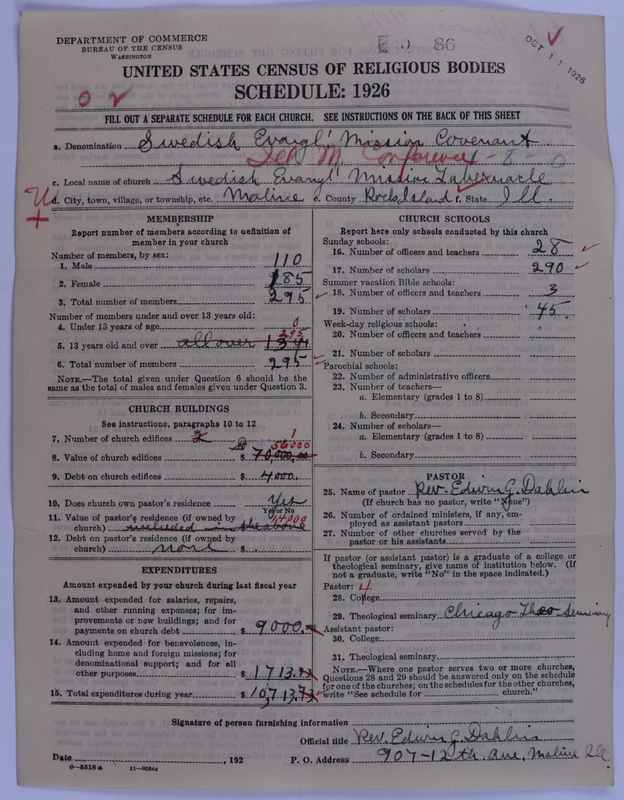 DEPARTMENT OF COMMERCE
BUREAU OF THE CENSUS
WASHINGTON
86
OCT 11 1926
UNITED STATES CENSUS OF RELIGIOUS BODIES
SCHEDULE: 1926
FILL OUT A SEPARATE SCHEDULE FOR EACH CHURCH. SEE INSTRUCTIONS ON THE BACK OF THIS SHEET
a. Denomination Swedish Evangl' Mission Covenant
1-8-0
c. Local name of church Swedish Evangl' Mission Tabernacle
d. City, town, village, or township, etc. Moline e. County Rock Island f. State Ill.
MEMBERSHIP
Report number of members according to definition of
member in your church
Number of members, by sex:
1. Male 110
2. Female 185
3. Total number of members 295
Number of members under and over 13 years old:
4. Under 13 years of age 0
5. 13 years old and over all over 13 yrs 295
6. Total number of members 295
NOTE.—The total given under Question 6 should be the
same as the total of males and females given under Question 3.
CHURCH BUILDINGS
See instructions, paragraphs 10 to 12
7. Number of church edifices 2 1
8. Value of church edifices $ 70,000.00 56000
9. Debt on church edifices $ 4000.
10. Does church own pastor's residence Yes
Yes or No
11. Value of pastor's residence (if owned by
church) included in the above 14000
12. Debt on pastor's residence (if owned by
church) none $
EXPENDITURES
Amount expended by your church during last fiscal year
13. Amount expended for salaries, repairs,
and other running expenses; for im-
provements or new buildings; and for
payments on church debt $ 9000.
14. Amount expended for benevolences, in-
cluding home and foreign missions; for
denominational support; and for all
other purposes $ 1713.73
15. Total expenditures during year $ 10,713.73
CHURCH SCHOOLS
Report here only schools conducted by this church
Sunday schools:
16. Number of officers and teachers 28
17. Number of scholars 290
Summer vacation Bible schools:
18. Number of officers and teachers 3
19. Number of scholars 45
Week-day religious schools:
20. Number of officers and teachers
21. Number of scholars
Parochial schools:
22. Number of administrative officers
23. Number of teachers—
a. Elementary (grades 1 to 8)
b. Secondary
24. Number of scholars—
a. Elementary (grades 1 to 8)
b. Secondary
PASTOR
25. Name of pastor Rev. Edwin G. Dahlin
(If church has no pastor, write "None")
26. Number of ordained ministers, if any, em-
ployed as assistant pastors
27. Number of other churches served by the
pastor or his assistants
If pastor (or assistant pastor) is a graduate of a college or
theological seminary, give name of institution below. (If
not a graduate, write "No" in the space indicated.)
Pastor: 4
28. College
29. Theological seminary Chicago Theo Seminary
Assistant pastor:
30. College
31. Theological seminary
NOTE.—Where one pastor serves two or more churches,
Questions 28 and 29 should be answered only on the schedule
for one of the churches; on the schedules for the other churches,
write "See schedule for church."
Signature of person furnishing information
Official title Rev. Edwin G. Dahlin
Date , 192 P. O. Address 907-12th Ave, Moline Ill
8—5518 a 11—9034